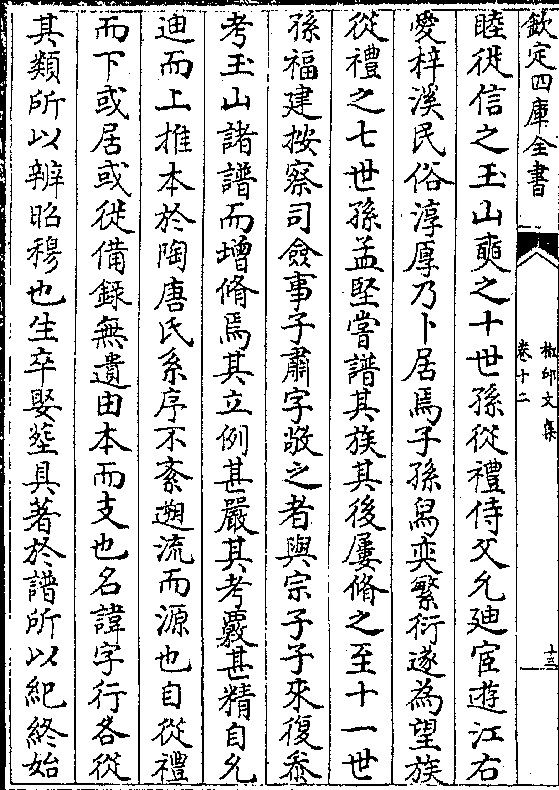 欽定四庫全書
卷十二
十三
睦徙信之玉山奭之十世孫從禮侍父允廸宦遊江右
愛梓溪民俗淳厚乃卜居焉子孫舃奕繁衍遂為望族
從禮之七世孫孟堅嘗譜其族其後屢脩之至十一世
孫福建按察司僉事子肅字敬之者與宗子子來復叅
考玉山諸譜而增脩焉其立例甚嚴其考覈甚精自允
迪而上推本於陶唐氏系序不紊遡流而源也自從禮
而下或居或徙備録無遺由本而支也名諱字行各從
其類所以辨昭穆也生卒娶塟具著於譜所以紀終始